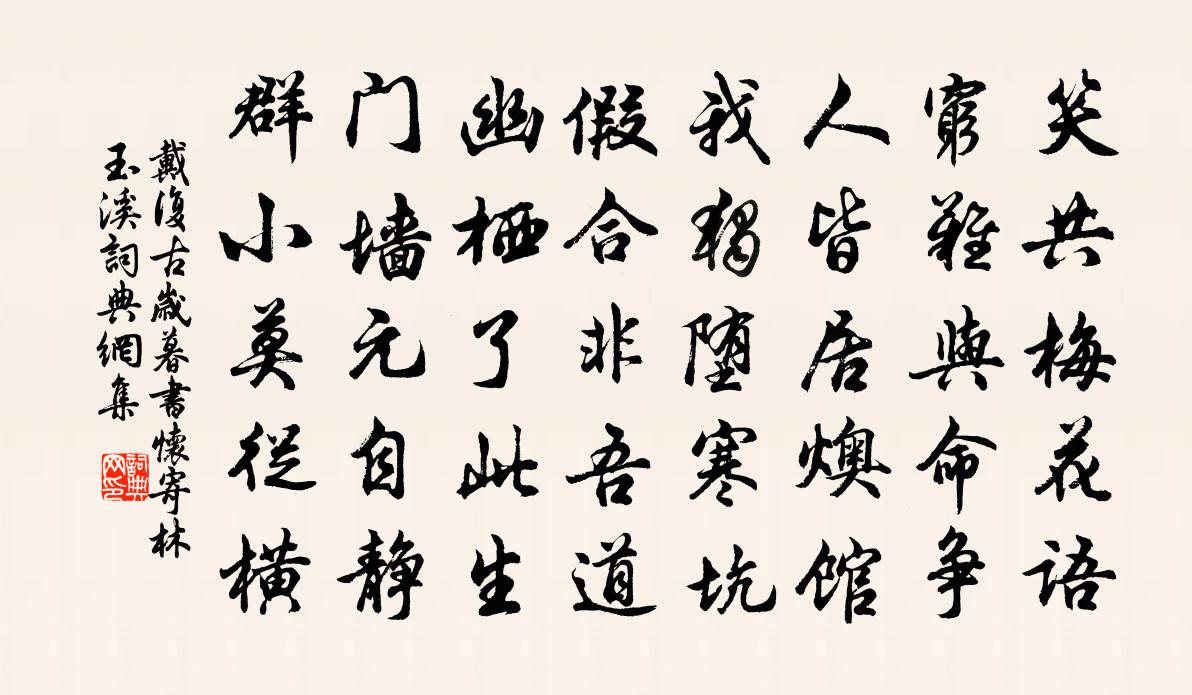 笑共梅花语
穷难与命争
人皆居燠馆
我独堕寒坑
假合非吾道
幽栖了此生
门墙元自静
群小莫从横
戴復古歲暮書懷寄林
玉溪詞典網集
詞典網印